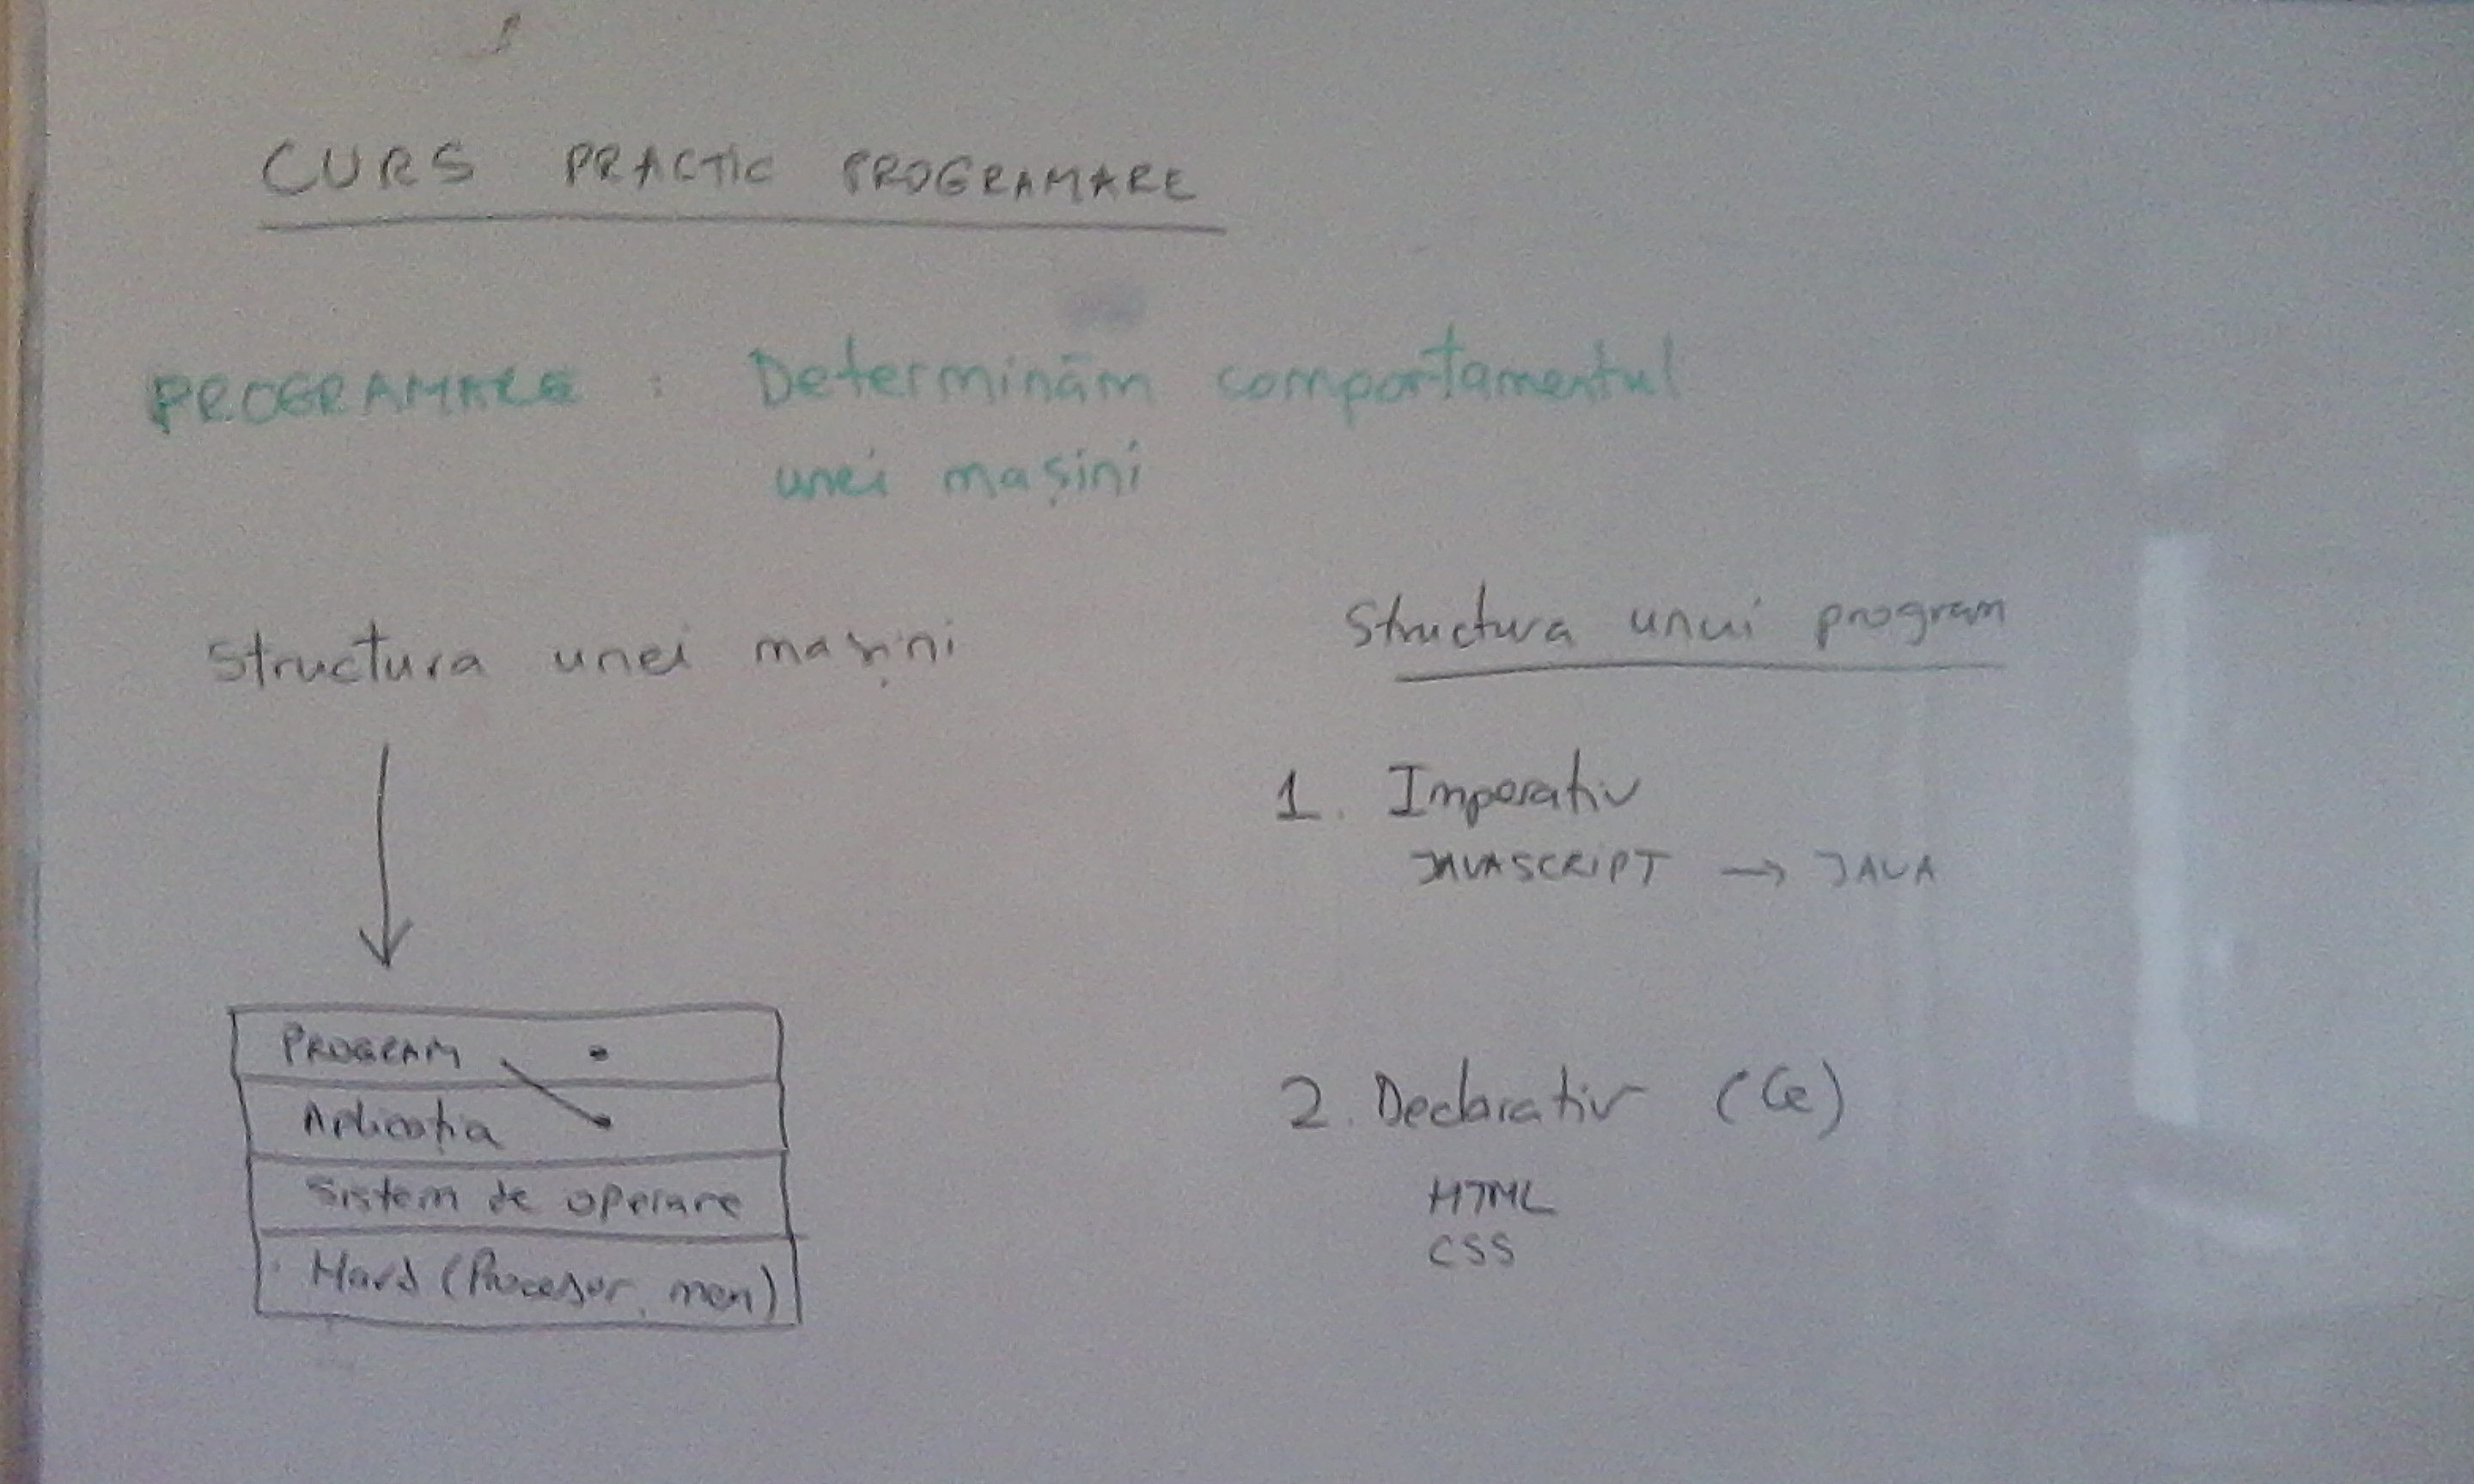 CURS PRACTIC PROGRAMARE
PROGRAMARE : Determinăm comportamentul
unei mașini
Structura unei mașini
PROGRAM
Aplicația
Sistem de operare
Hard (Procesor, mem)
Structura unui program
1. Imperativ
JAVASCRIPT → JAVA
2. Declarativ (Ce)
HTML
CSS